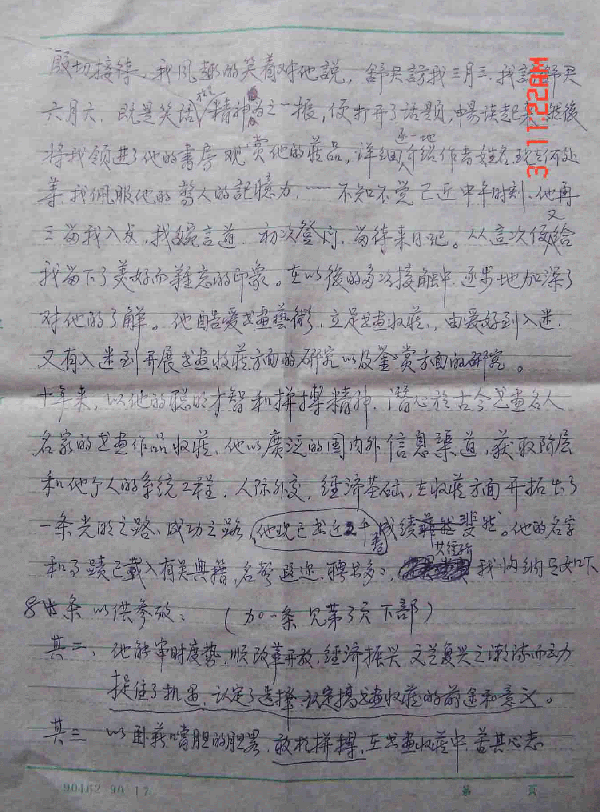 殷切接待。我风趣的笑着对他説，舒君訪我三月三，我訪舒君
六月六，既是笑话，精神为之一振，便打开了话题，暢谈起来，然後
将我领进了他的書房观赏他的藏品，详细逐一地介绍作者姓名，現在何处
等，我佩服他的驚人的記憶力，……不知不觉已近中午时刻，他再
三留我入席，我婉言道，初次登門，留待来日吧。从這次便又给
我留下了美好而難忘的印象。在以後的多次接触中，逐步地加深了
对他的了解。他酷爱書画藝術，立足書画收藏，由爱好到入迷，
又有入迷到开展書画收藏方面的研究以及鉴赏方面的研究。
十年来，以他的聪明才智和拼搏精神，潛心於古今書画名人
名家的書画作品收藏，他以廣泛的国内外信息渠道，获取阶层
和他个人的系统工程，人际外交，经济基础，在收藏方面开拓出了
一条光明之路、成功之路，他现已 成績斐然。他的名字
和事蹟已載入有关典籍，名誉 聘書多多，我归纳 如下
8 条以供参考：（加一条见第3页下部）
其二、他能审时度势，顺改革开放，经济振兴，文艺复兴之潮流而动力
捉住了机遇，认定了选择，认定搞書画收藏的前途和意义。
其三 以卧薪嚐胆的胆畧，敢於拼搏，在書画收藏中，苦其心志
90162·90·17
第 页
3 11:22AM